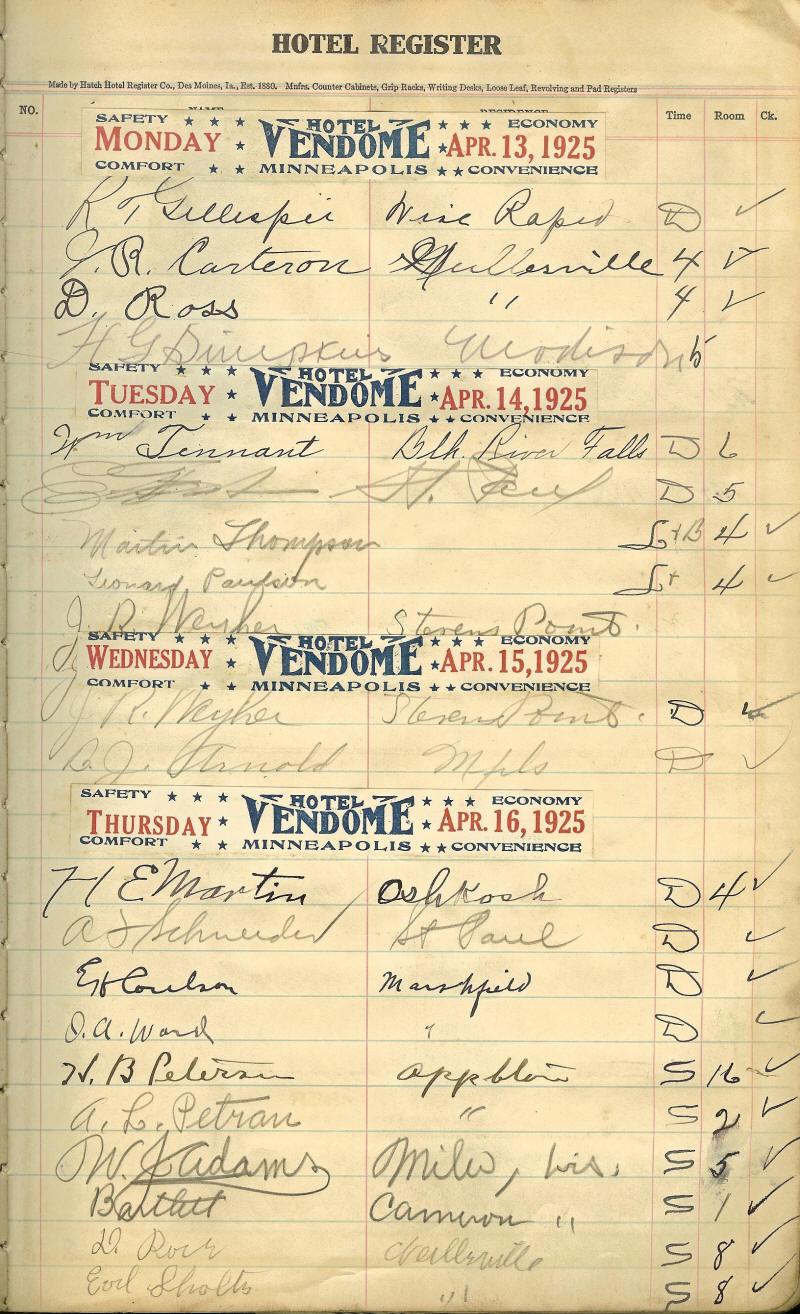 HOTEL REGISTER
Made by Hatch Hotel Register Co., Des Moines, Ia., Est. 1880. Mnfrs. Counter Cabinets, Grip Racks, Writing Desks, Loose Leaf, Revolving and Pad Registers
NO. NAME RESIDENCE Time Room Ck.
SAFETY HOTEL ECONOMY
MONDAY VENDOME APR. 13, 1925
COMFORT MINNEAPOLIS CONVENIENCE
K T Gillespie Wisc Rapid D ✓
J. R. Carteron 4 ✓
D. Ross " 4 ✓
H G Simpskins Madison 5
SAFETY HOTEL ECONOMY
TUESDAY VENDOME APR. 14, 1925
COMFORT MINNEAPOLIS CONVENIENCE
Wm Tennant Blk. River Falls D 6
St. Paul D 5
Martin Thompson L+B 4 ✓
Leonard Paulson L+ 4 ✓
J. R. Weyher Stevens Point.
SAFETY HOTEL ECONOMY
WEDNESDAY VENDOME APR. 15, 1925
COMFORT MINNEAPOLIS CONVENIENCE
J R. Weyher Stevens Point. D ✓
J. Arnold Mpls D ✓
SAFETY HOTEL ECONOMY
THURSDAY VENDOME APR. 16, 1925
COMFORT MINNEAPOLIS CONVENIENCE
H E Martin Oshkosh D 4 ✓
A J Schneider St Paul D ✓
E H Coulson Marshfield D ✓
O. A. Ward " D ✓
H. B Peterson Appleton S 16 ✓
A. L. Petran " S 2 ✓
W. J. Adams Milw, Wis. S 5 ✓
Bartlett Cameron " S 1 ✓
S 8 ✓
Sholts " S 8 ✓